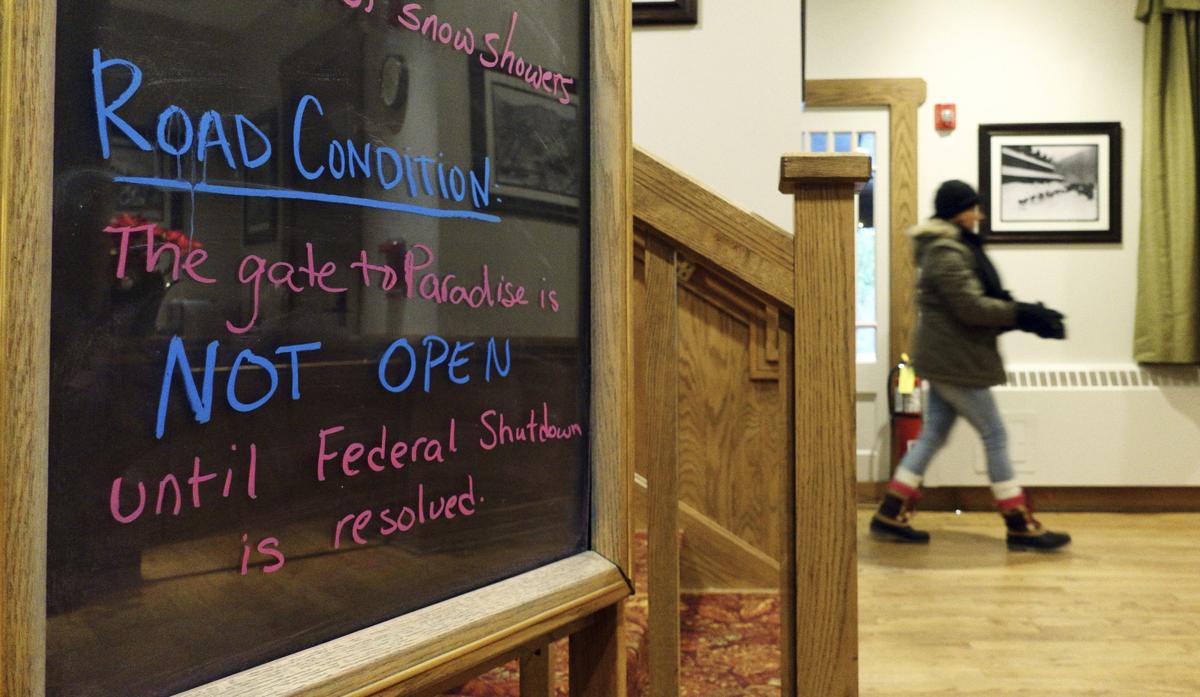 snow showers
ROAD CONDITION:
The gate to Paradise is
NOT OPEN
until Federal Shutdown
is resolved.